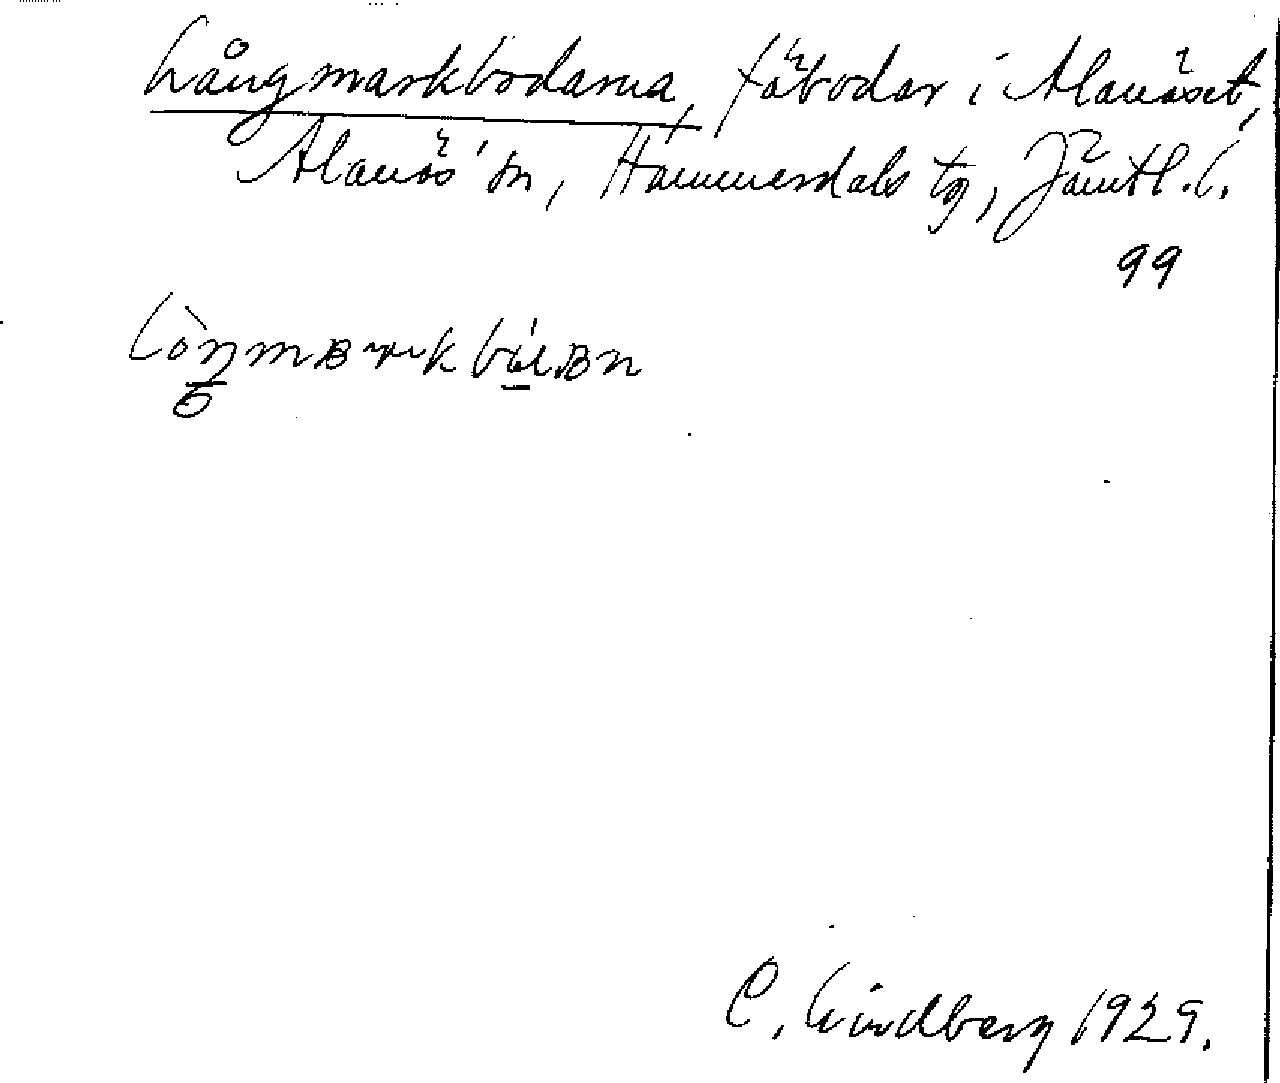 Långmarkbodarna, fäbodar i Alanäset,
Alanäs sn, Hammerdals tg, Jämtl. l.
99
C. Lindberg 1929.